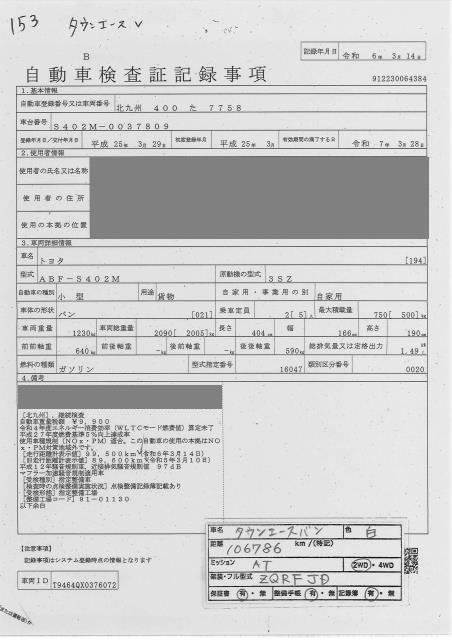 153 タウンエース V
記録年月日 令和 6年 3月 14日
B
自動車検査証記録事項
912230064384
1.基本情報
自動車登録番号又は車両番号 北九州 400 た 7758
車台番号 S402M-0037809
登録年月日/交付年月日 平成 25年 3月 29日 初度登録年月 平成 25年 3月 有効期間の満了する日 令和 7年 3月 28日
2.使用者情報
使用者の氏名又は名称
使用者の住所
使用の本拠の位置
3.車両詳細情報
車名 トヨタ [194]
型式 ABF-S402M 原動機の型式 3SZ
自動車の種別 小型 用途 貨物 自家用・事業用の別 自家用
車体の形状 バン [021] 乗車定員 2[ 5]人 最大積載量 750[ 500]kg
車両重量 1230kg 車両総重量 2090[ 2005]kg 長さ 404cm 幅 166cm 高さ 190cm
前前軸重 640kg 前後軸重 -kg 後前軸重 -kg 後後軸重 590kg 総排気量又は定格出力 1.49L
燃料の種類 ガソリン 型式指定番号 16047 類別区分番号 0020
4.備考
[北九州],継続検査
自動車重量税額 ¥9,900
令和4年度エネルギー消費効率(WLTCモード燃費値)算定未了
平成27年度燃費基準5%向上達成車
使用車種規制(NOx・PM)適合。この自動車の使用の本拠はNO
x・PM対策地域外です。
[走行距離計表示値] 99,500km(令和6年3月14日)
[旧走行距離計表示値] 89,600km(令和5年3月10日)
平成12年騒音規制車,近接排気騒音規制値 97dB
マフラー加速騒音規制適用車
[受検種別] 指定整備車
[検査時の点検整備実施状況] 点検整備記録簿記載あり
[受検形態] 指定整備工場
[整備工場コード] 91-01130
以下余白
【注意事項】
記録事項はシステム登録時点の情報となります
車両ID T9464QX0376072
車名 タウンエースバン 色 白
距離 106786 km/(特記)
ミッション AT 2WD・4WD
架装・フル型式 ZQRFJD
保証書 有・無 整備手帳 有・無 記録簿 有・無